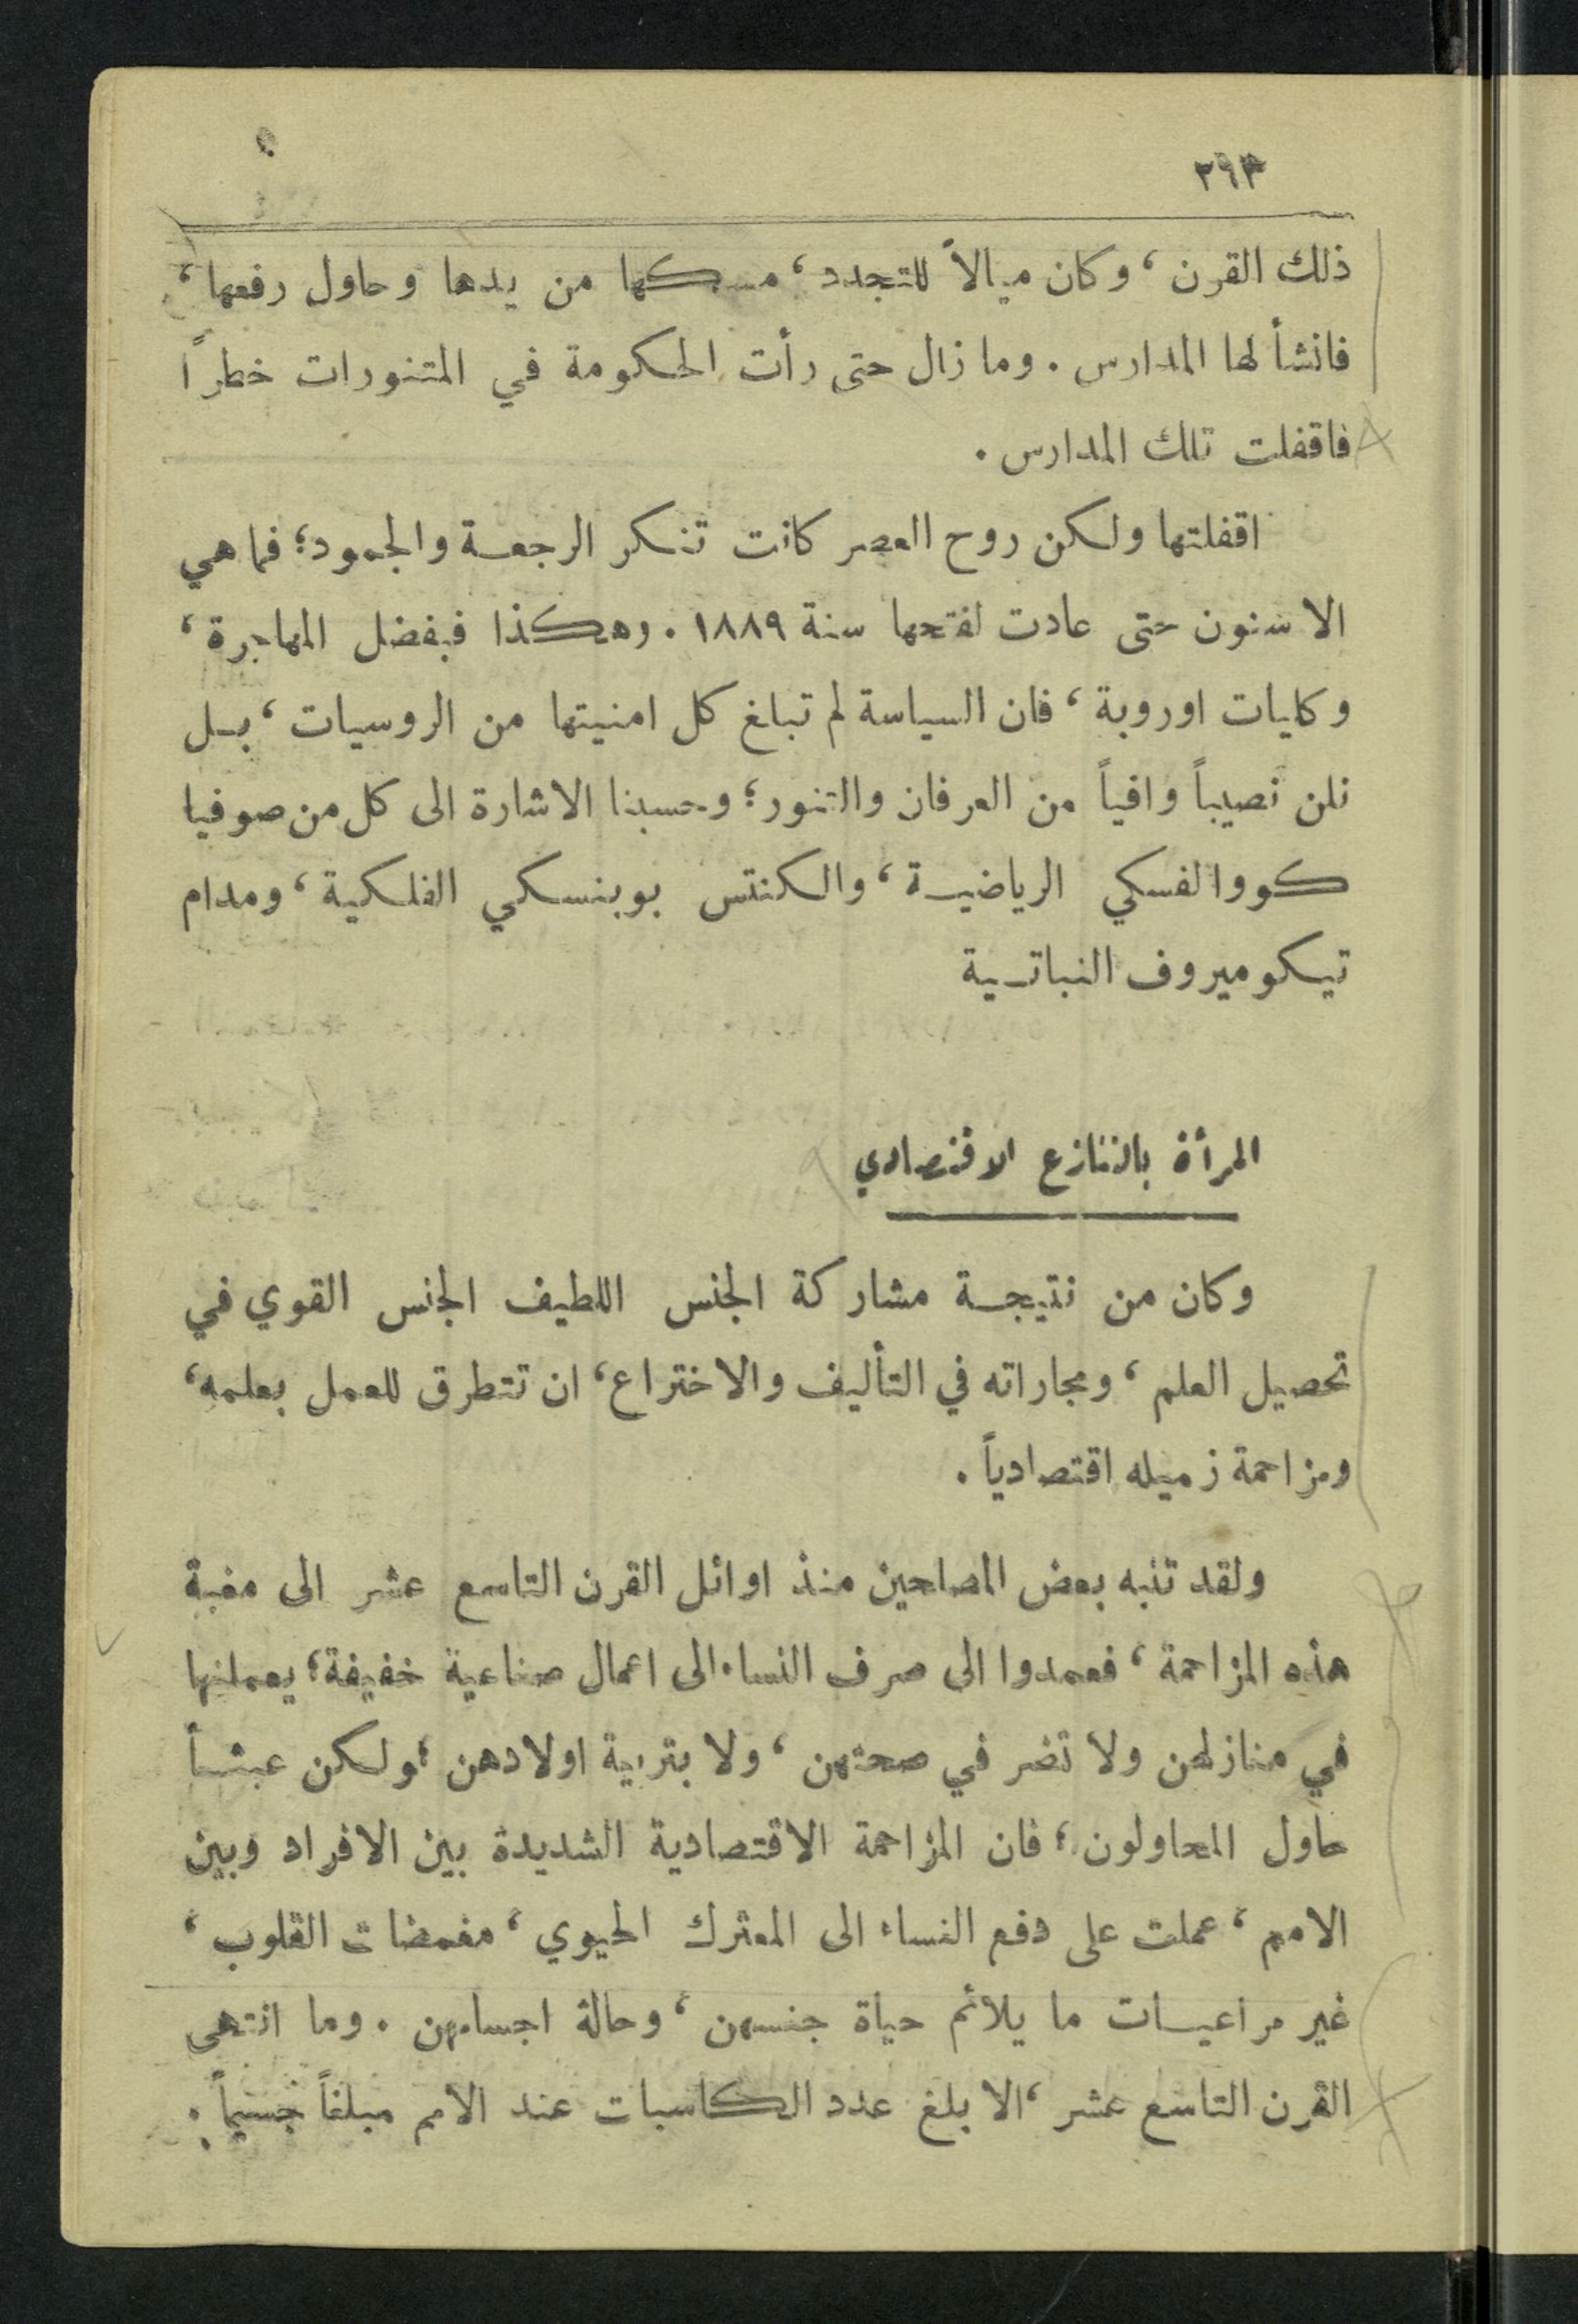 ذلك القرن، وكان ميالاً للتجدد، مسكها من يدها وحاول رفعها،
فانشأ لها المدارس. وما زال حتى رأت الحكومة في المتنورات خطراً
فاقفلت تلك المدارس.
اقفلتها ولكن روح العصر كانت تنكر الرجعة والجمود؛ فما هي
الا سنون حتى عادت لفتحها سنة ١٨٨٩. وهكذا فبفضل المهاجرة،
وكليات اوروبة، فان السياسة لم تبلغ كل امنيتها من الروسيات، بل
نلن نصيباً وافياً من العرفان والتنور؛ وحسبنا الاشارة الى كل من صوفيا
كووالفسكي الرياضية، والكنتس بوبنسكي الفلكية، ومدام
تيكوميروف النباتية
المرأة بالتنازع الاقتصادي
وكان من نتيجة مشاركة الجنس اللطيف الجنس القوي في
تحصيل العلم، ومجاراته في التأليف والاختراع، ان تتطرق للعمل بعلمه،
ومزاحمة زميله اقتصادياً.
ولقد تنبه بعض المصلحين منذ اوائل القرن التاسع عشر الى مغبة
هذه المزاحمة، فعمدوا الى صرف النساء الى اعمال صناعية خفيفة؛ يعملنها
في منازلهن ولا تضر في صحتهن، ولا بتربية اولادهن؛ ولكن عبثاً
حاول المحاولون؛ فان المزاحمة الاقتصادية الشديدة بين الافراد وبين
الامم، عملت على دفع النساء الى المعترك الحيوي، مغمضات القلوب،
غير مراعيات ما يلائم حياة جنسهن، وحالة اجسامهن. وما انتهى
القرن التاسع عشر، الا بلغ عدد الكاسبات عند الامم مبلغاً جسيماً.